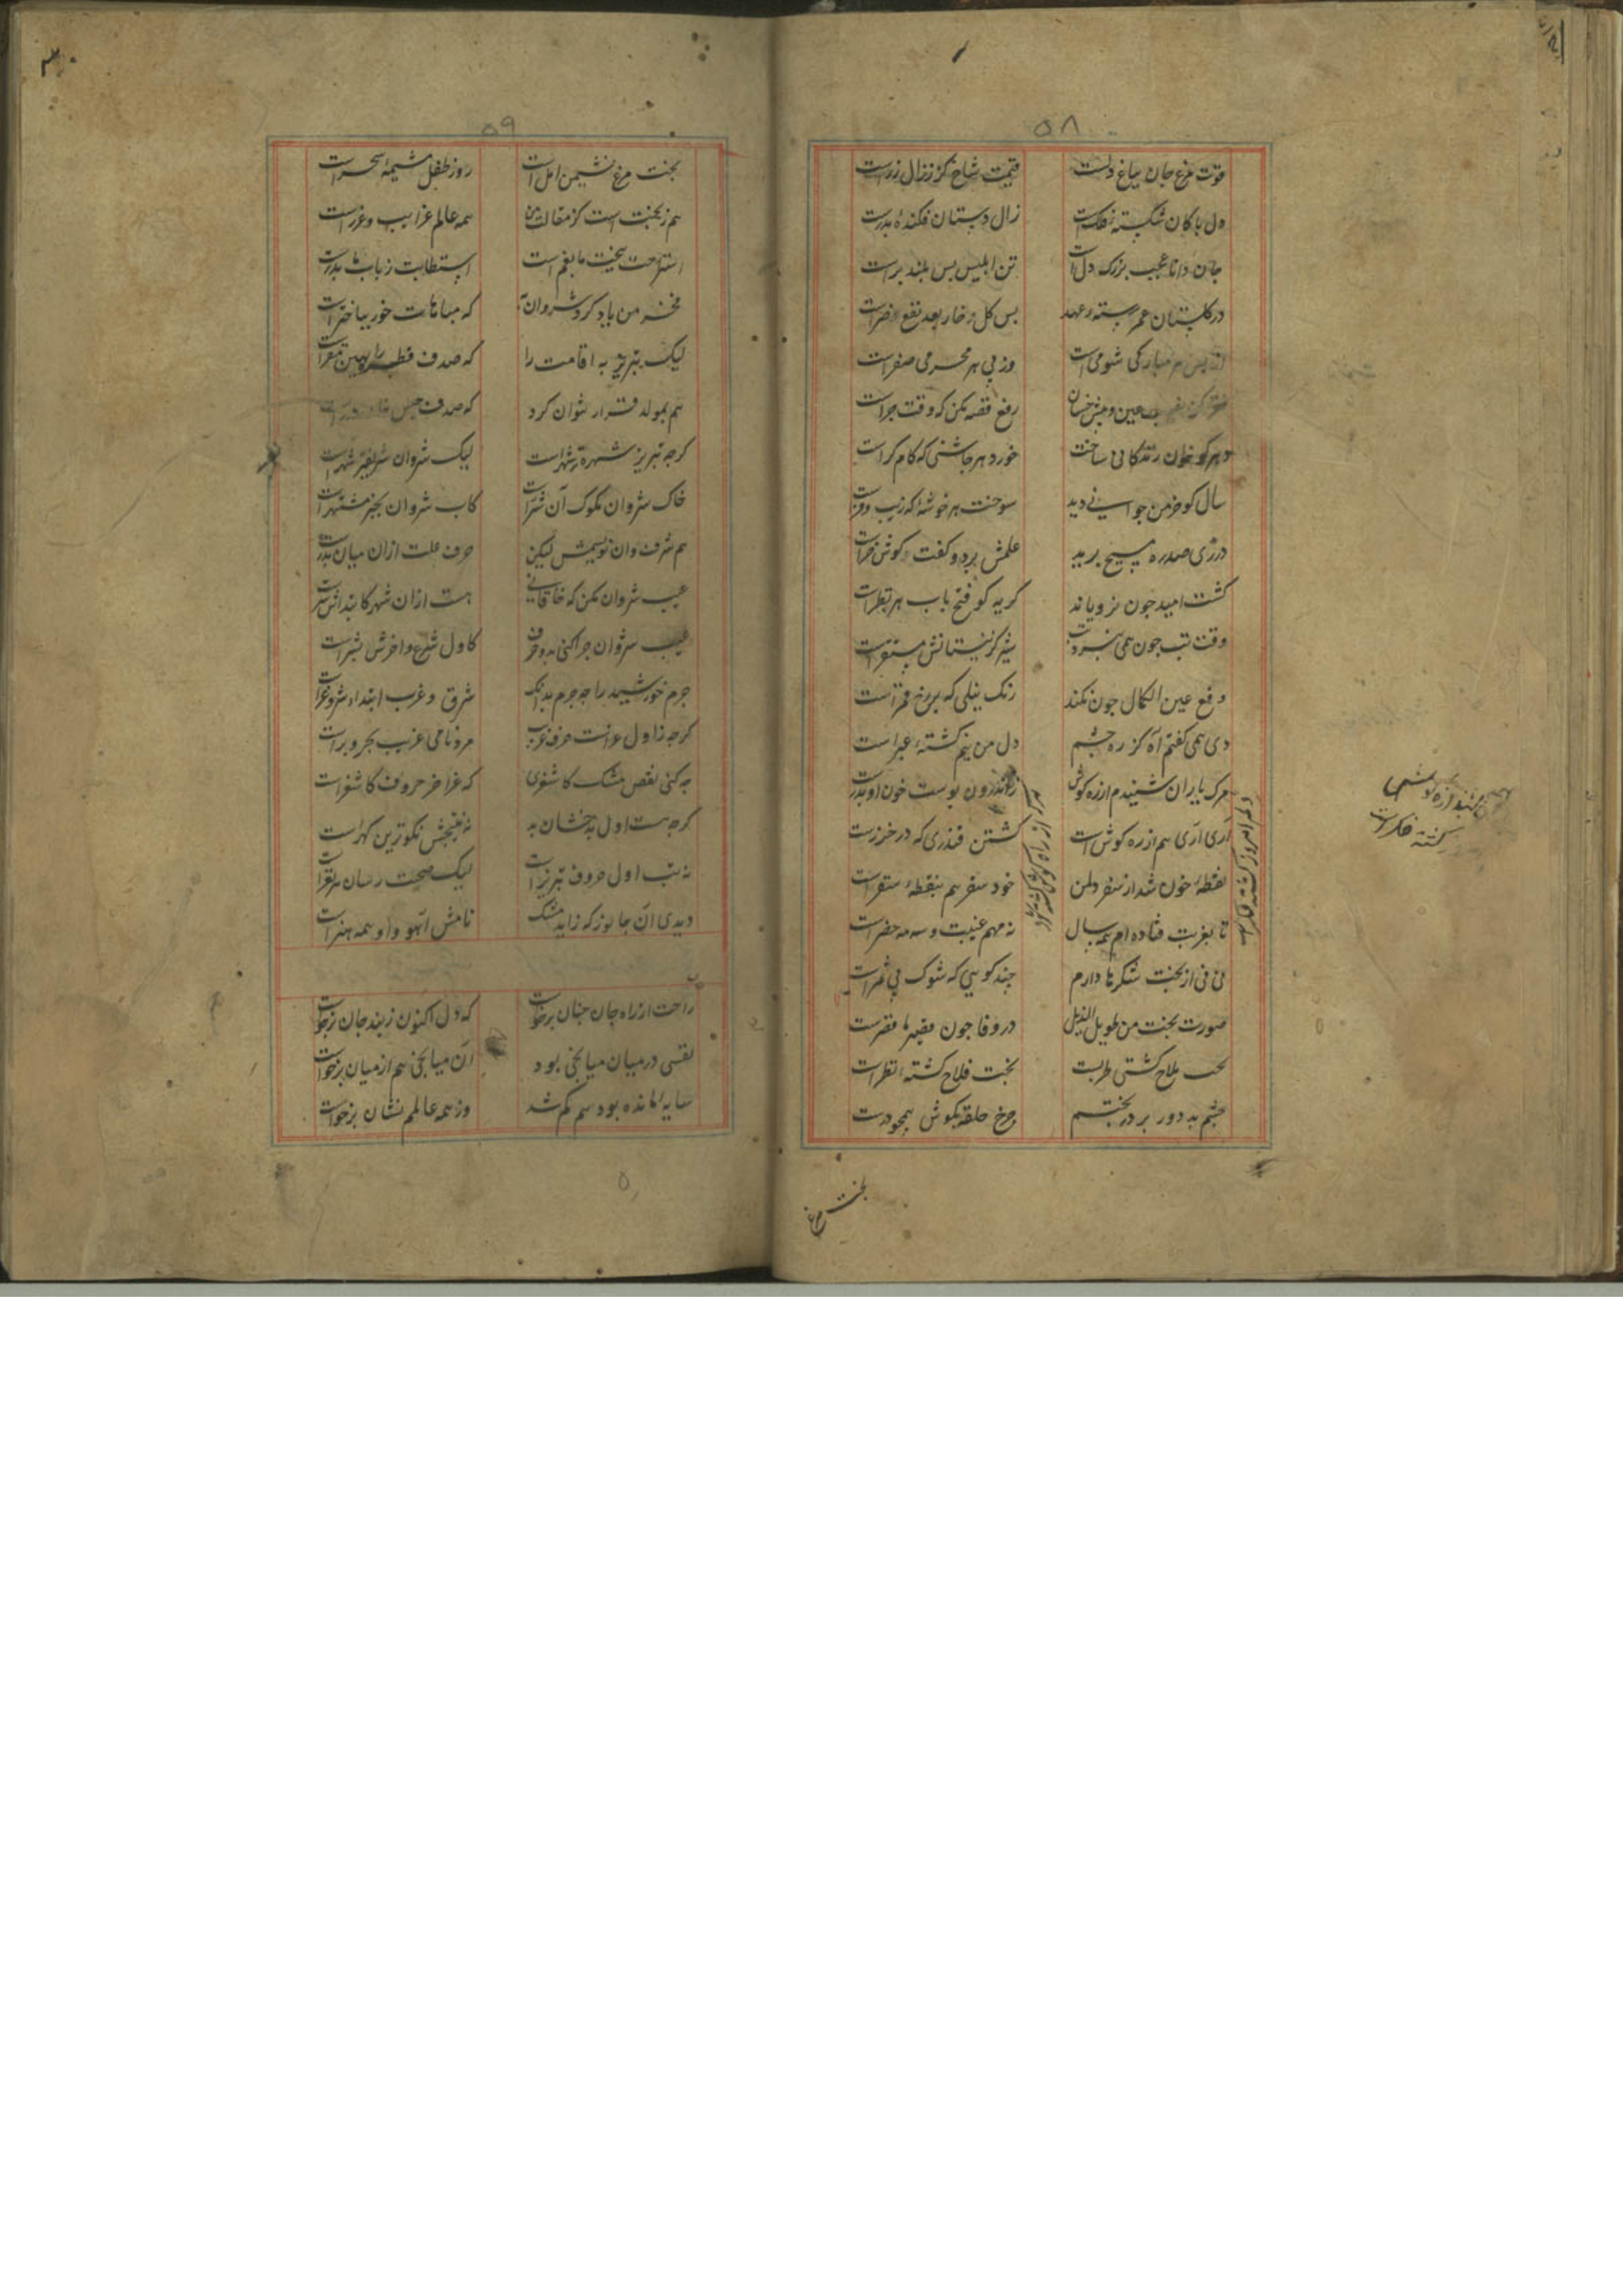 ۵۸
قوت مرغ جان بباغ دلست قیمت شاخ کز ززال زرست
دل پاکان شکسته فلکست زال دستان فکنده پدرست
جان دانا عجب بزرک دل است تن ابلیس بس بلند براست
در کلستان عمر و رسته عهد بس کل و خار بعد نفع و ضراست
از پس هر مبارکی شومی است وز پی هر محرمی صفراست
رفع قصه مکن که وقت جراست
هر کو خوان زندکانی ساخت خورد هر جاشنی که کام کراست
سال کو خرمن جوانی دید سوخت هر خوشه که زیب وفرست
درزی صدره مسیح برید علمش برد و کفت کوش خراست
کشت امید جون نرویاند کریه کو فتح باب هر نظراست
وقت تب جون بنی نبرد تب شیر کز نیستانش مستقراست
دفع عین الکمال جون نکند رنک نیلی که بر رخ قمراست
دی همی کفتم آه کز ره جشم دل من نیم کشته عبراست
مرک یاران شنیدم از ره کوش
آری آری هم از ره کوش است کشتن قندزی که در خزرست
نقطه خون شد از سفر دلمن خود سفر هم بنقطه سقراست
تا بغربت فتاده ام همه سال نه مهم غیبت و سه مه حضراست
نی نی از بخت شکرها دارم جند کویی که شوک بی ثمراست
صورت بخت من طویل الذیل در وفا جون قصیر با قصرست
بخت ملاح کشتی طربست بخت فلاح کشته نظراست
جشم بد دور بر در بختم جرخ حلقه بکوش همجو درست
بخت مرغ
۵۹
بخت مرغ نشیمن امل است روز طفل مشیمه سحراست
هم ز بخت است کز مقالت من همه عالم غرایب و غرراست
استراحت ببخت یا بنعم است استطابت ز باب یا بدرست
مفخر من یاد کرد شروان به که مباهات خور بباختراست
لیک تبریز به اقامت را که صدف قطره را بهین مقراست
هم بمولد قرار نتوان کرد که صدف حبس
کرجه تبریز شهره تر شهراست لیک شروان شریفتر ثغراست
خاک شروان مکوک آن شراست کاب شروان بخیر مشتهراست
هم شرفوان نویسمش لیکن حرف علت ازان میان بدرست
عیب شروان مکن که خاقانی هست ازان شهر کابتداش شرست
عیب شروان جرا کنی بدو حرف کاول شرع و اخرش بشراست
جرم خورشید را جه جرم بدانک شرق و غرب ابتدا شر و غراست
کرجه ز اول غرانست حرف غریب مرد نامی غریب بحر و براست
جه کنی نقص مشک کاشغری که غر اخر حروف کاشغراست
کرجه هست اول بدخشان بد نه نتیجش نکوترین کهراست
نه تب اول حروف تبریزاست لیک صحت رسان هر نفراست
دیدی آن جانور که زاید مشک نامش آهو و او همه هنراست
راحت از راه جان جنان برخواست که دل اکنون ز بند جان برخواست
نفسی در میان میانجی بود آن میانجی هم از میان برخواست
سایه مانده بود هم کم شد وز همه عالمم نشان برخواست